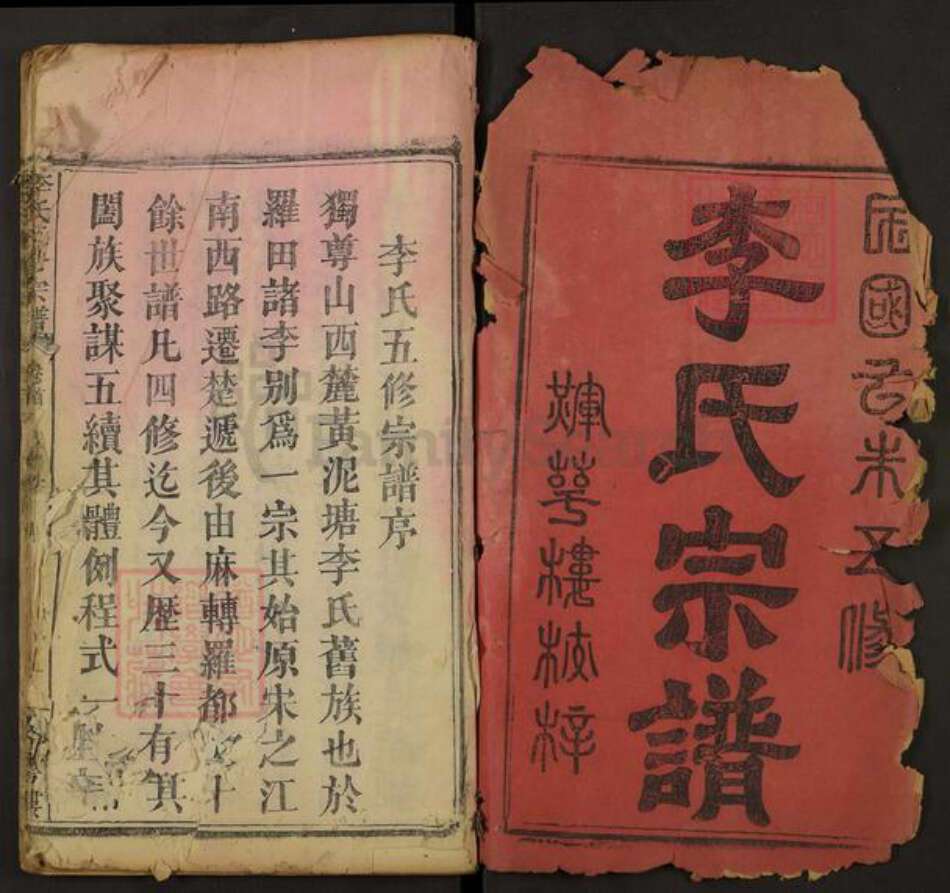 民國己未五修
李氏宗譜
輝萼樓梓
李氏五修宗譜序
獨尊山西麓黃泥塘李氏舊族也於
羅田諸李別爲一宗其始原宋之江
南西路遷楚遞後由麻轉羅都十
餘世譜凡四修迄今又歴三十有
闔族聚謀五續其體例程式一